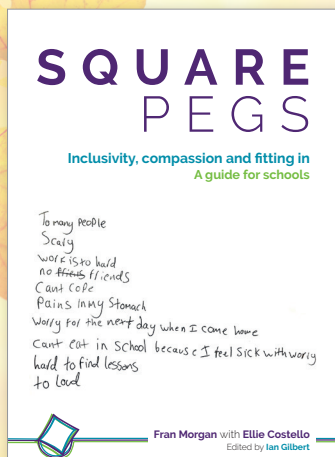 SQUARE
PEGS
Inclusivity, compassion and fitting in
A guide for schools
To many people
Scary
work is to hard
no friens friends
Cant cope
Pains in my Stomach
Worry for the next day when I come home
Cant eat in School because I feel Sick with worry
hard to find lessons
to loud
Fran Morgan with Ellie Costello
Edited by Ian Gilbert